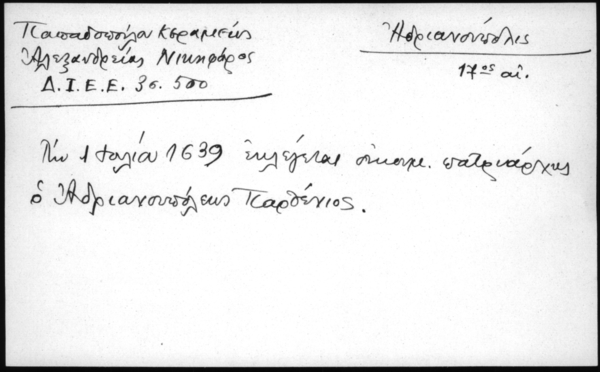 Παπαδοπούλου Κεραμεύς
Ἀλεξανδρείας Νικηφόρος
Δ.Ι.Ε.Ε. 3ς. 500
Ἀδριανούπολις
17ος αἰ.
Τὴν 1 Ἰουλίου 1639 ἐκλέγεται οἰκουμ. πατριάρχης
ὁ Ἀδριανουπόλεως Παρθένιος.